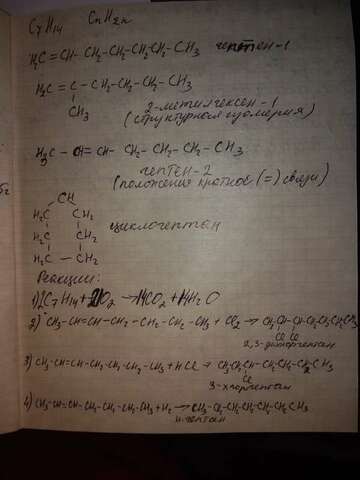 C7H14 CnH2n
H2C=CH-CH2-CH2-CH2-CH2-CH3 гептен-1
H2C=C-CH2-CH2-CH2-CH3
CH3
2-метилгексен-1
(структурная изомерия)
H3C-CH=CH-CH2-CH2-CH2-CH3
гептен-2
(положения кратной (=) связи)
CH
H2C CH2
H2C CH2
H2C - CH2
циклогептан
Реакции:
1) 2C7H14+21O2→14CO2+14H2O
2) CH3-CH=CH-CH2-CH2-CH2-CH3+Cl2→
Cl Cl
2,3-дихлоргептан
3) CH3-CH=CH-CH2-CH2-CH2-CH3+HCl→
Cl
3-хлоргептан
4) CH3-CH=CH-CH2-CH2-CH2-CH3+H2→
н-гептан